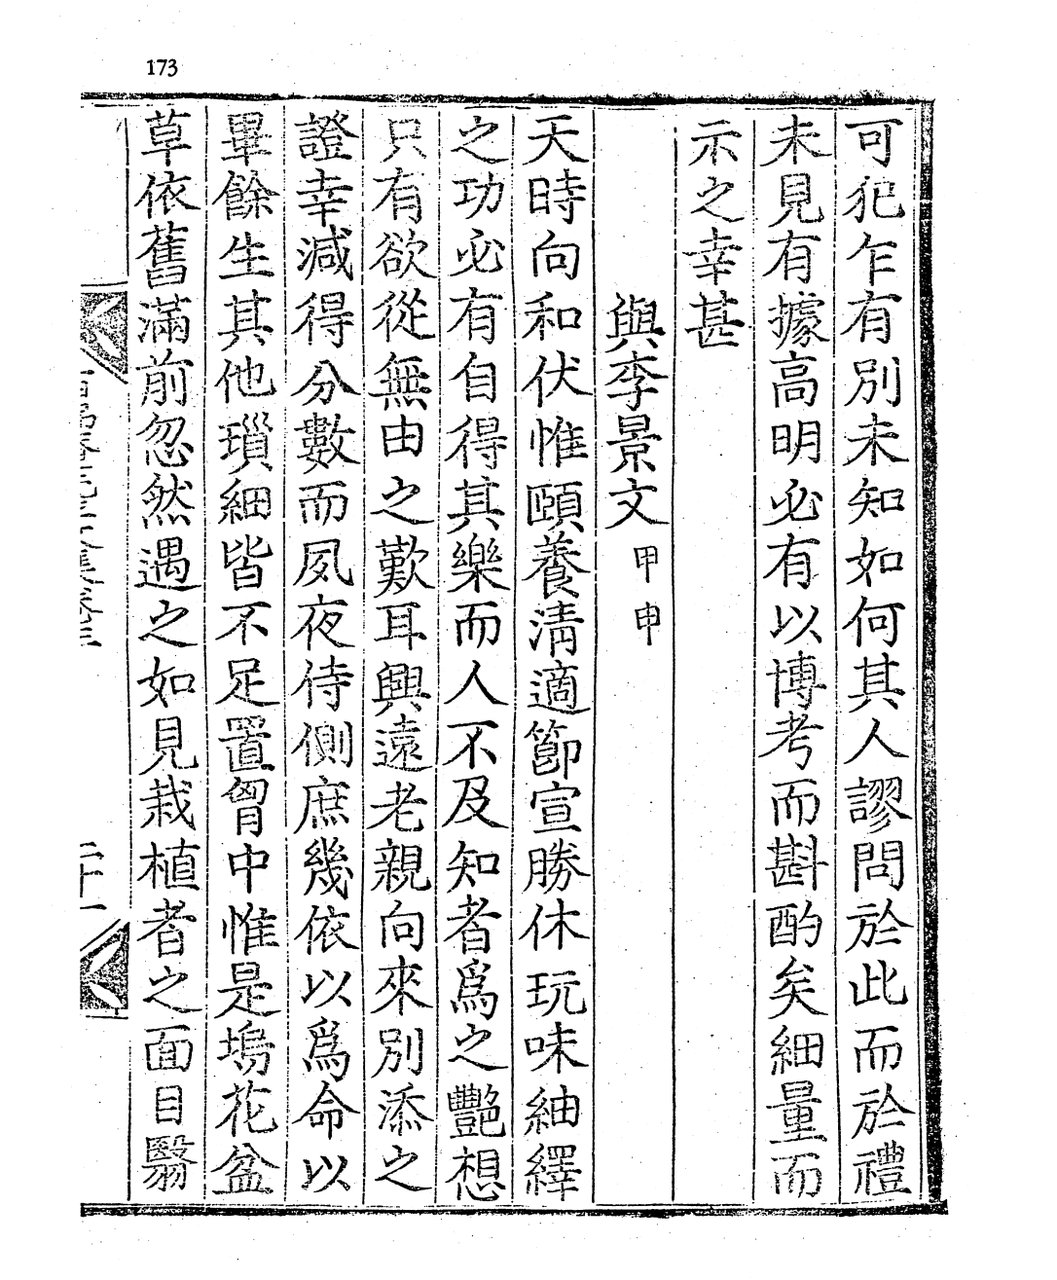 173
可犯乍有別未知如何其人謬問於此而於禮
未見有據高明必有以博考而斟酌矣細量而
示之幸甚
與李景文 甲申
天時向和伏惟頤養淸適節宣勝休玩味紬繹
之功必有自得其樂而人不及知者爲之艷想
只有欲從無由之歎耳興遠老親向來別添之
證幸減得分數而夙夜侍側庶幾依以爲命以
畢餘生其他瑣細皆不足置胷中惟是塢花盆
草依舊滿前忽然遇之如見栽植者之面目翳
二十一